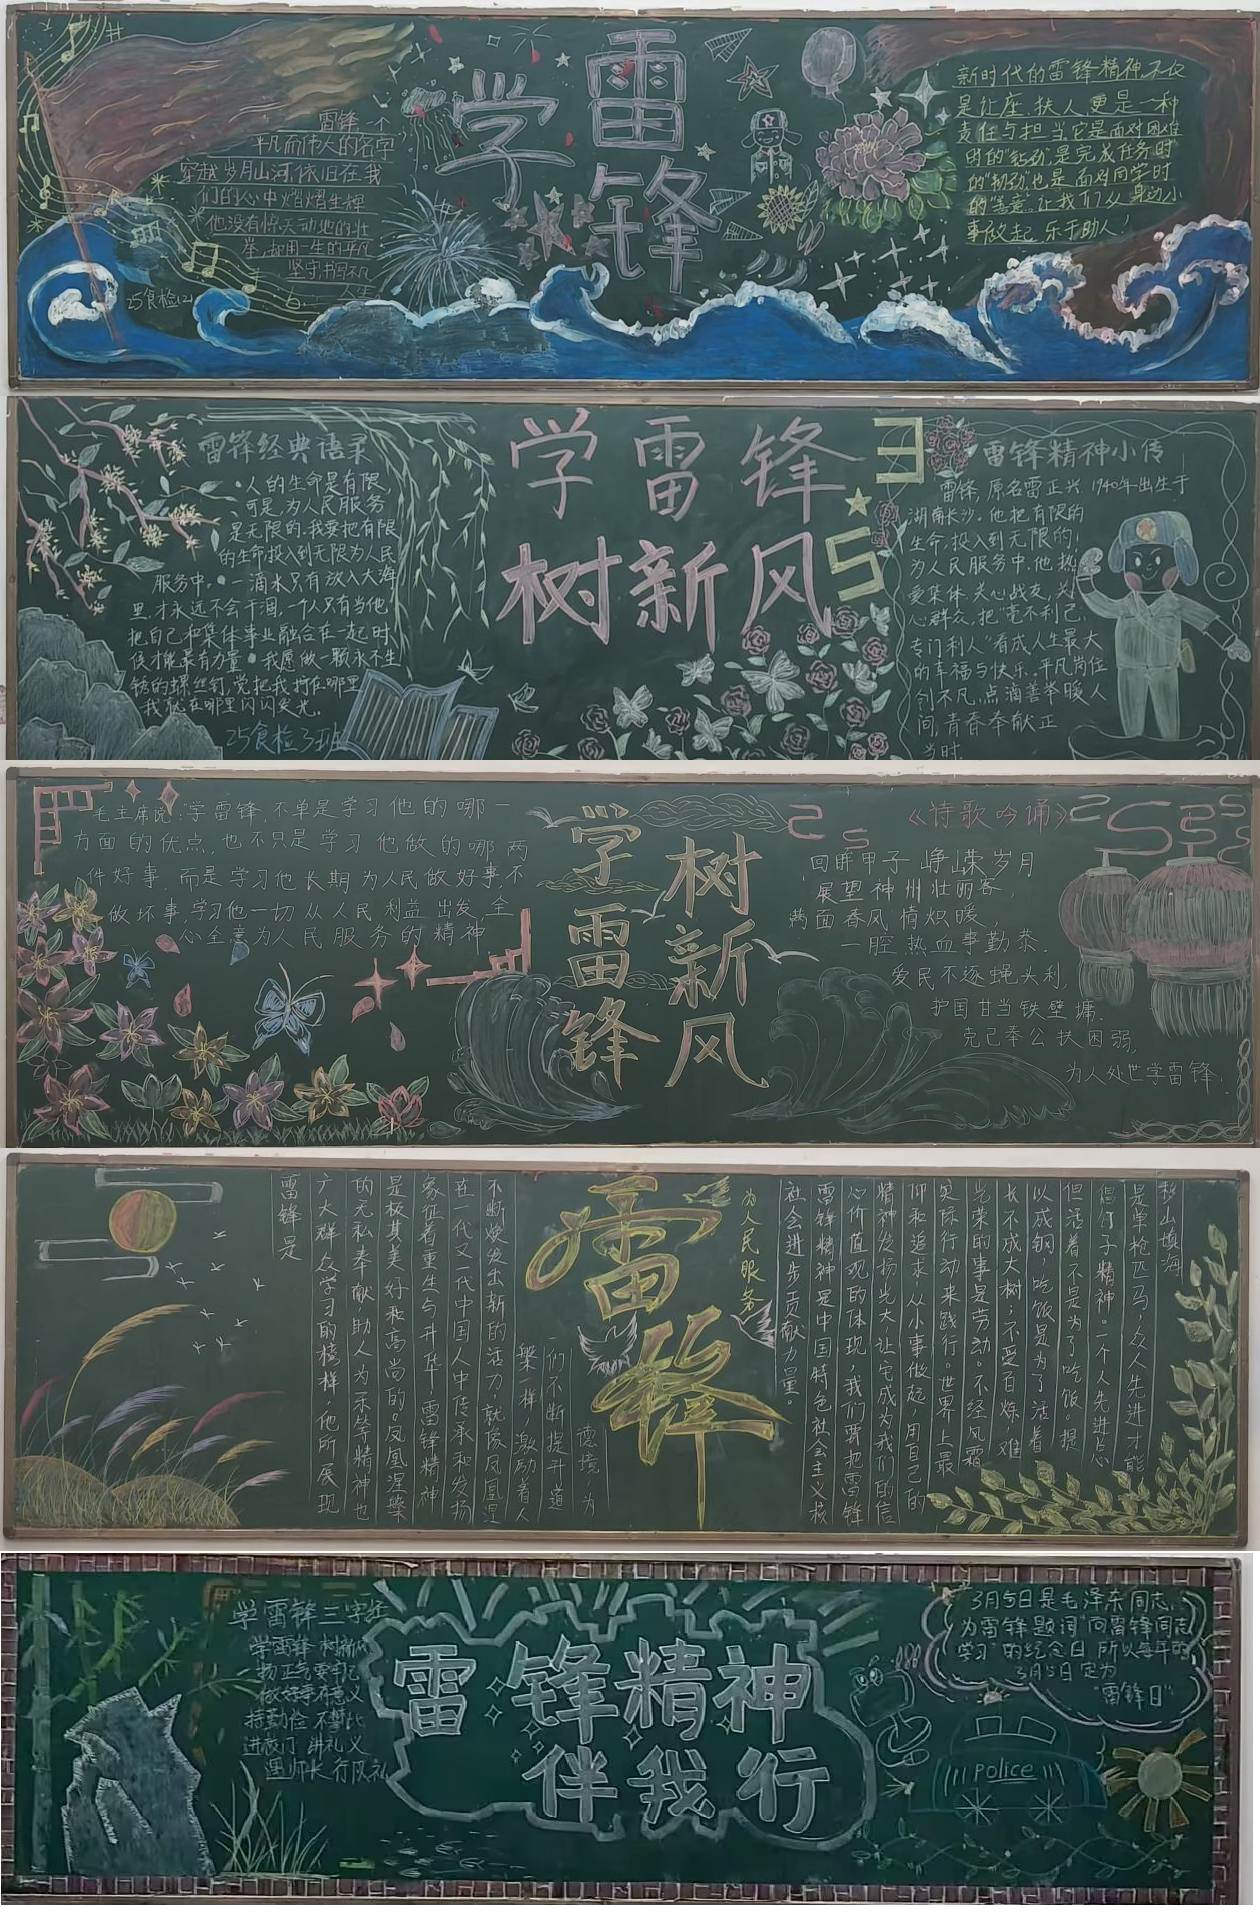 学
雷
锋
雷锋,一个
平凡而伟大的名字
穿越岁月山河,依旧在我
们的心中熠熠生辉
他没有惊天动地的壮
举,却用一生的平凡
坚守书写不凡
人生
25食检(2)
新时代的雷锋精神,不仅
是让座、扶人,更是一种
责任与担当,它是面对困难
时的"钻劲",是完成任务时
的"韧劲"也是面对同学时
的"善意",让我们从身边小
事做起,乐于助人!
雷锋经典语录
人的生命是有限,
可是,为人民服务
是无限的,我要把有限
的生命,投入到无限为人民
服务中。一滴水只有放入大海
里,才永远不会干涸,一个人只有当他
把自己和集体事业融合在一起时,
候才能最有力量 我愿做一颗永不生
锈的螺丝钉,党把我拧在哪里
我就在哪里闪闪发光。
25食检3班
学雷锋
树新风
3
5
雷锋精神小传
雷锋,原名雷正兴,1940年出生于
湖南长沙。他把有限的
生命,投入到无限的
为人民服务中,他热
爱集体,关心战友,关
心群众,把"毫不利己,
专门利人"看成人生最大
的幸福与快乐,平凡岗位
创不凡,点滴善举暖人
间,青春奉献正
当时
毛主席说:"学雷锋,不单是学习他的哪一
方面的优点,也不只是学习他做的哪两
件好事,而是学习他长期为人民做好事,不
做坏事,学习他一切从人民利益出发,全
心全意为人民服务的精神
学雷锋
树新风
《诗歌吟诵》
回眸甲子峥嵘岁月
展望神州壮丽客,
满面春风情炽暖,
一腔热血事勤恭.
爱民不逐蝇头利,
护国甘当铁壁墉.
克己奉公扶困弱,
为人处世学雷锋.
雷锋是
广大群众学习的榜样,他所展现
的无私奉献,助人为乐等精神也
是极其美好和高尚的。凤凰涅槃
象征着重生与升华,雷锋精神
在一代又一代中国人中传承和发扬
不断焕发出新的活力,就像凤凰涅
槃一样,激励着人
们不断提升道
德境为
雷锋
为人民服务
移山填海
是单枪匹马,众人先进才能
但活着不是为了吃饭。提
以成钢,吃饭是为了活着
长不成大树,不受百炼,难
光荣的事是劳动。不经风霜
实际行动来践行。世界上最
仰和追求,从小事做起,用自己的
精神发扬光大,让它成为我们的信
心价值观的体现,我们要把雷锋
雷锋精神是中国特色社会主义核
社会进步贡献力量。
学雷锋三字经
学雷锋 树新风
扬正气 要牢记
做好事 有意义
持勤俭 不攀比
进校门 讲礼义
遇师长 行队礼
雷锋精神
伴我行
3月5日是毛泽东同志,
为雷锋题词"向雷锋同志
学习"的纪念日,所以每年的
3月5日定为
"雷锋日"
Police